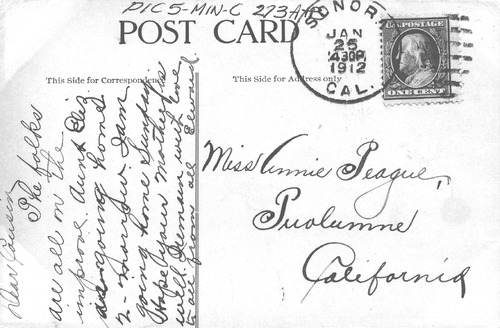 PIC 5-MIN-C 273A
POST CARD
SONORA
JAN
25
430P
1912
CAL.
U.S. POSTAGE
ONE CENT
This Side for Correspondence
This Side for Address only
Dear Cousin
The folks
are all on the
improve. Aunt Liz
is going home
2-morrow I am
going home Sunday
Hope your Mother is
well. Remain with love
to all from all
Miss Annie Teague,
Tuolumne
California